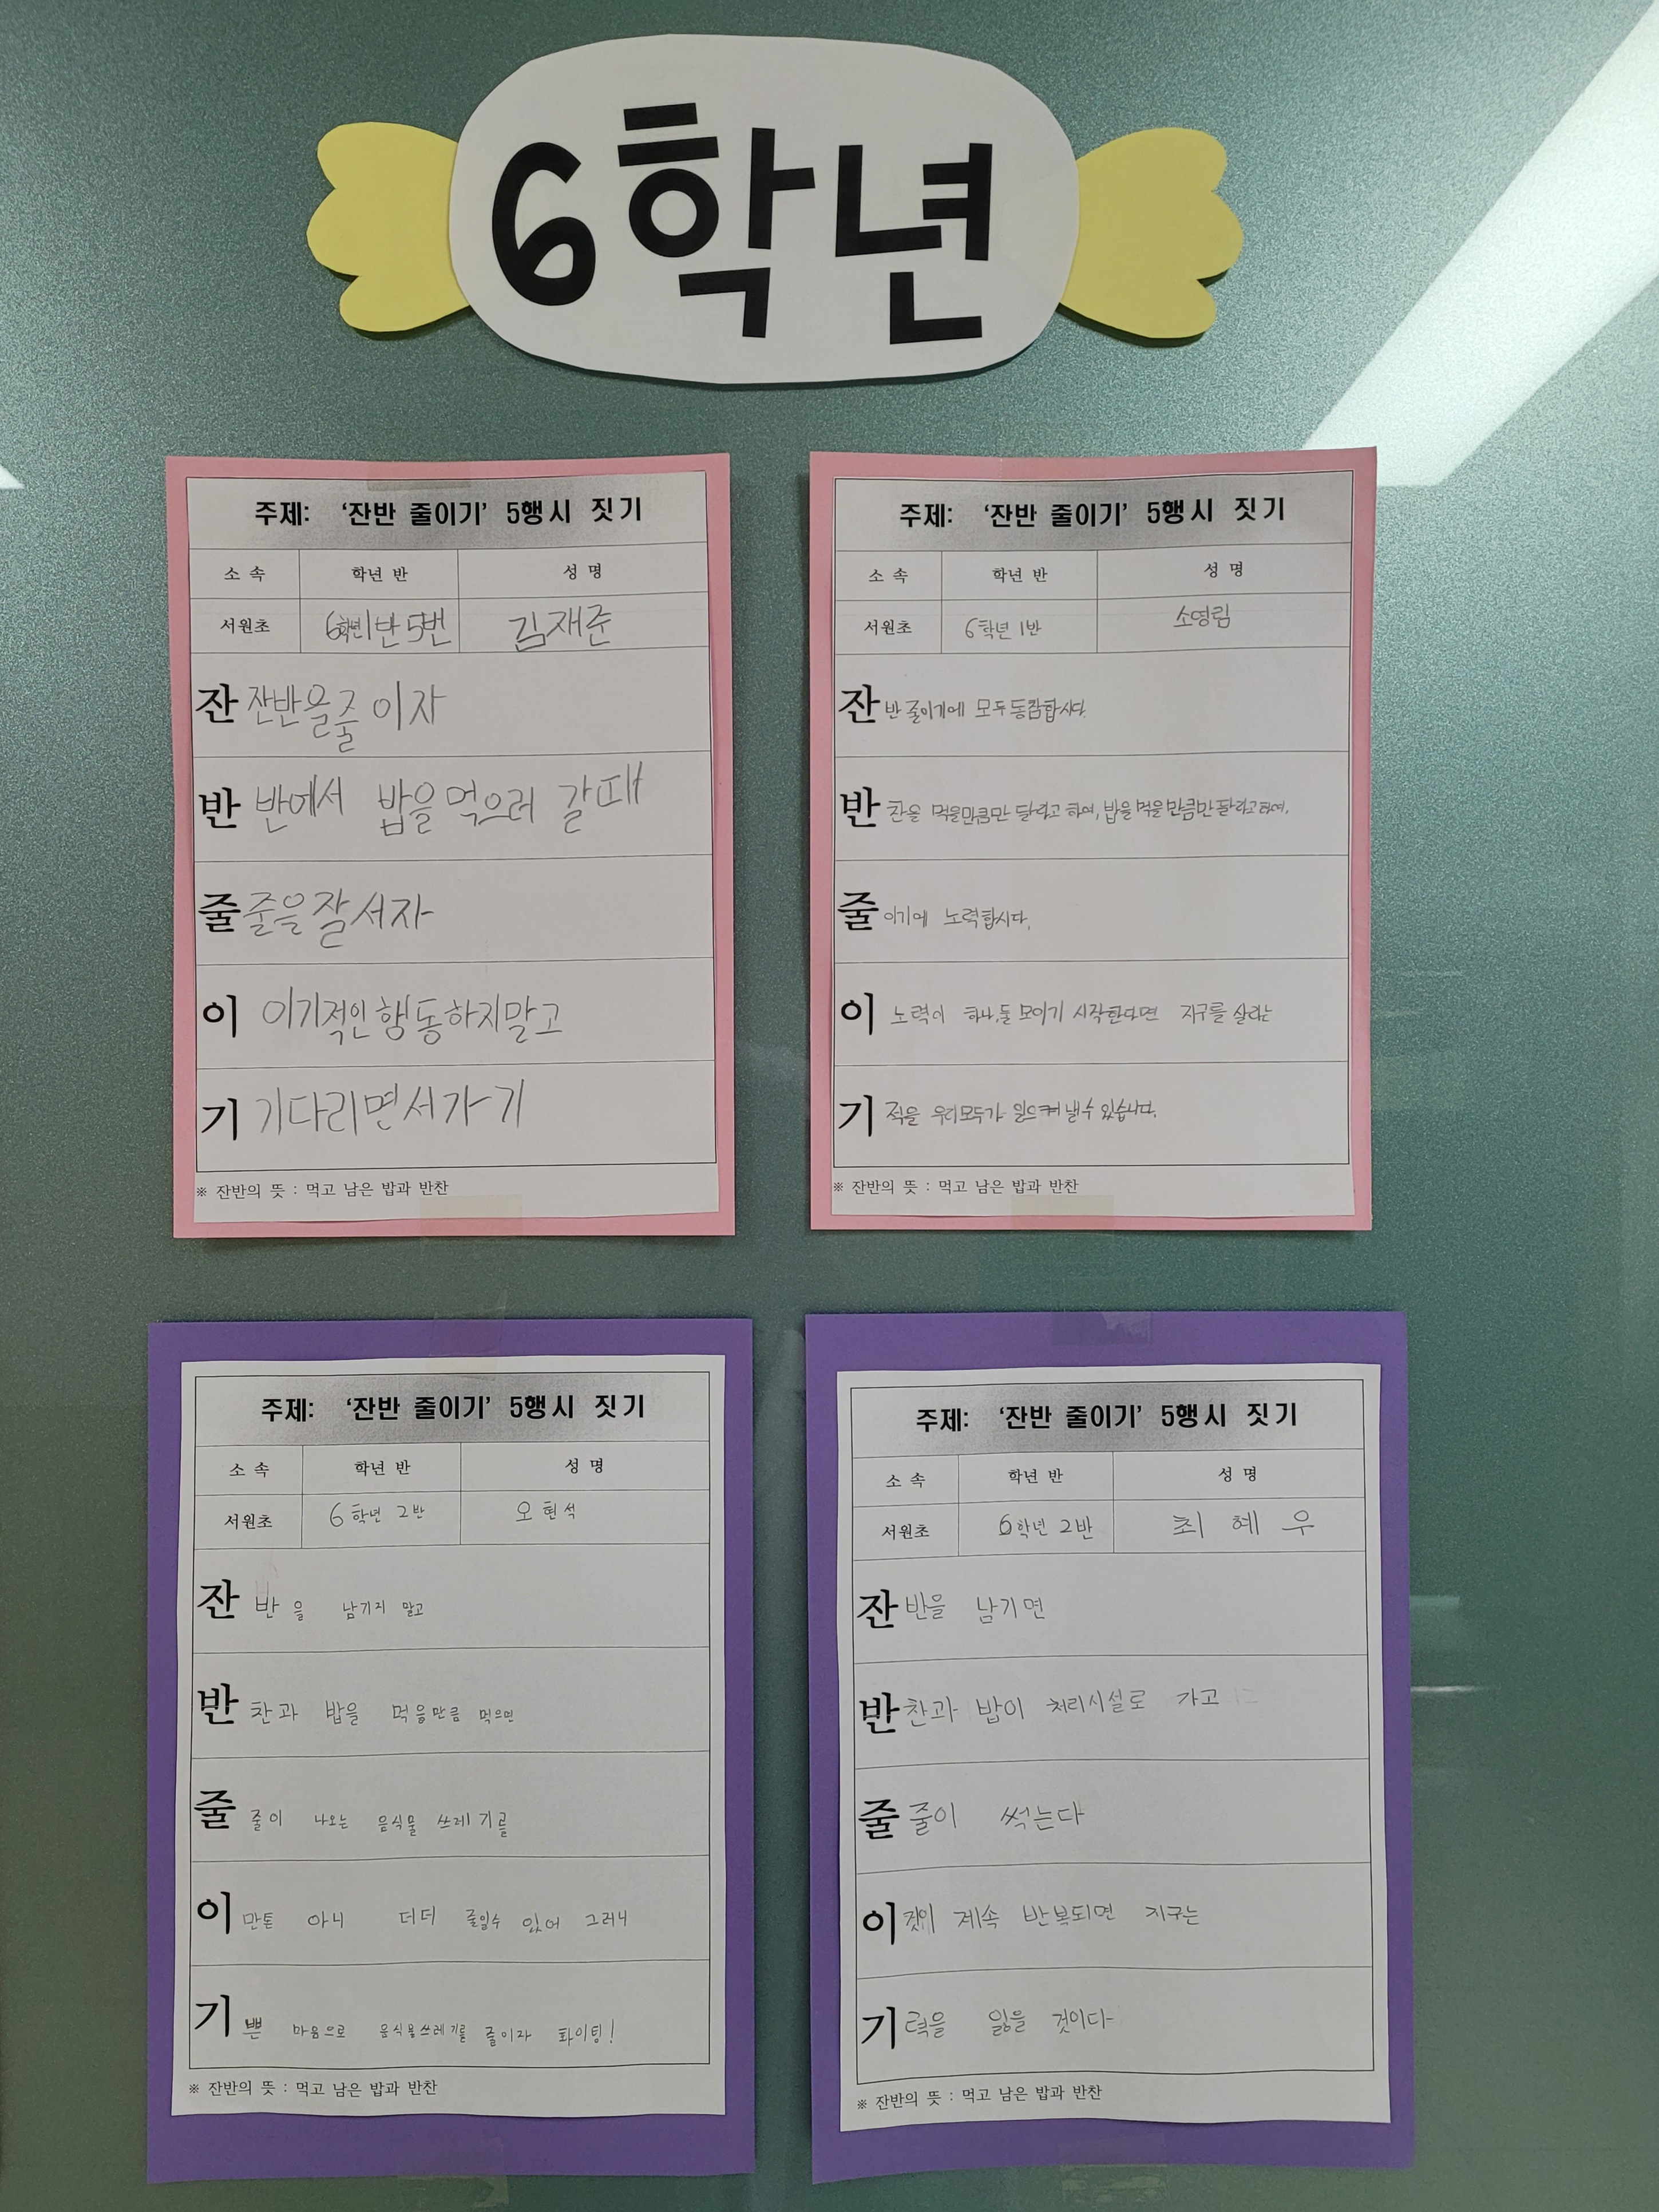 6학년
주제: ‘잔반 줄이기’ 5행시 짓기
소 속 학년 반 성 명
서원초 6학년1반 5번 김재준
잔 잔반을줄이자
반 반에서 밥을 먹으러 갈때
줄 줄을 잘 서자
이 이기적인 행동하지말고
기 기다리면서가기
※ 잔반의 뜻 : 먹고 남은 밥과 반찬
주제: ‘잔반 줄이기’ 5행시 짓기
소 속 학년 반 성 명
서원초 6학년 1반 소영림
잔 반 줄이기에 모두 동참합시다.
반 찬을 먹을만큼만 달라고 하며, 밥을 먹을만큼만 달라고하여,
줄 이기에 노력합시다.
이 노력이 하나,둘 모이기 시작한다면 지구를 살리는
기 적을 우리모두가 일으켜 낼수 있습니다.
※ 잔반의 뜻 : 먹고 남은 밥과 반찬
주제: ‘잔반 줄이기’ 5행시 짓기
소 속 학년 반 성 명
서원초 6학년 2반 오현석
잔 반을 남기지 말고
반 찬과 밥을 먹을만큼 먹으면
줄 줄이 나오는 음식물 쓰레기를
이 만톤 아니 더더 줄일수 있어 그러니
기 쁜 마음으로 음식물쓰레기를 줄이자 화이팅!
※ 잔반의 뜻 : 먹고 남은 밥과 반찬
주제: ‘잔반 줄이기’ 5행시 짓기
소 속 학년 반 성 명
서원초 6학년 2반 최혜우
잔 반을 남기면
반 찬과 밥이 처리시설로 가고
줄 줄이 썩는다
이 것이 계속 반복되면 지구는
기 력을 잃을 것이다
※ 잔반의 뜻 : 먹고 남은 밥과 반찬